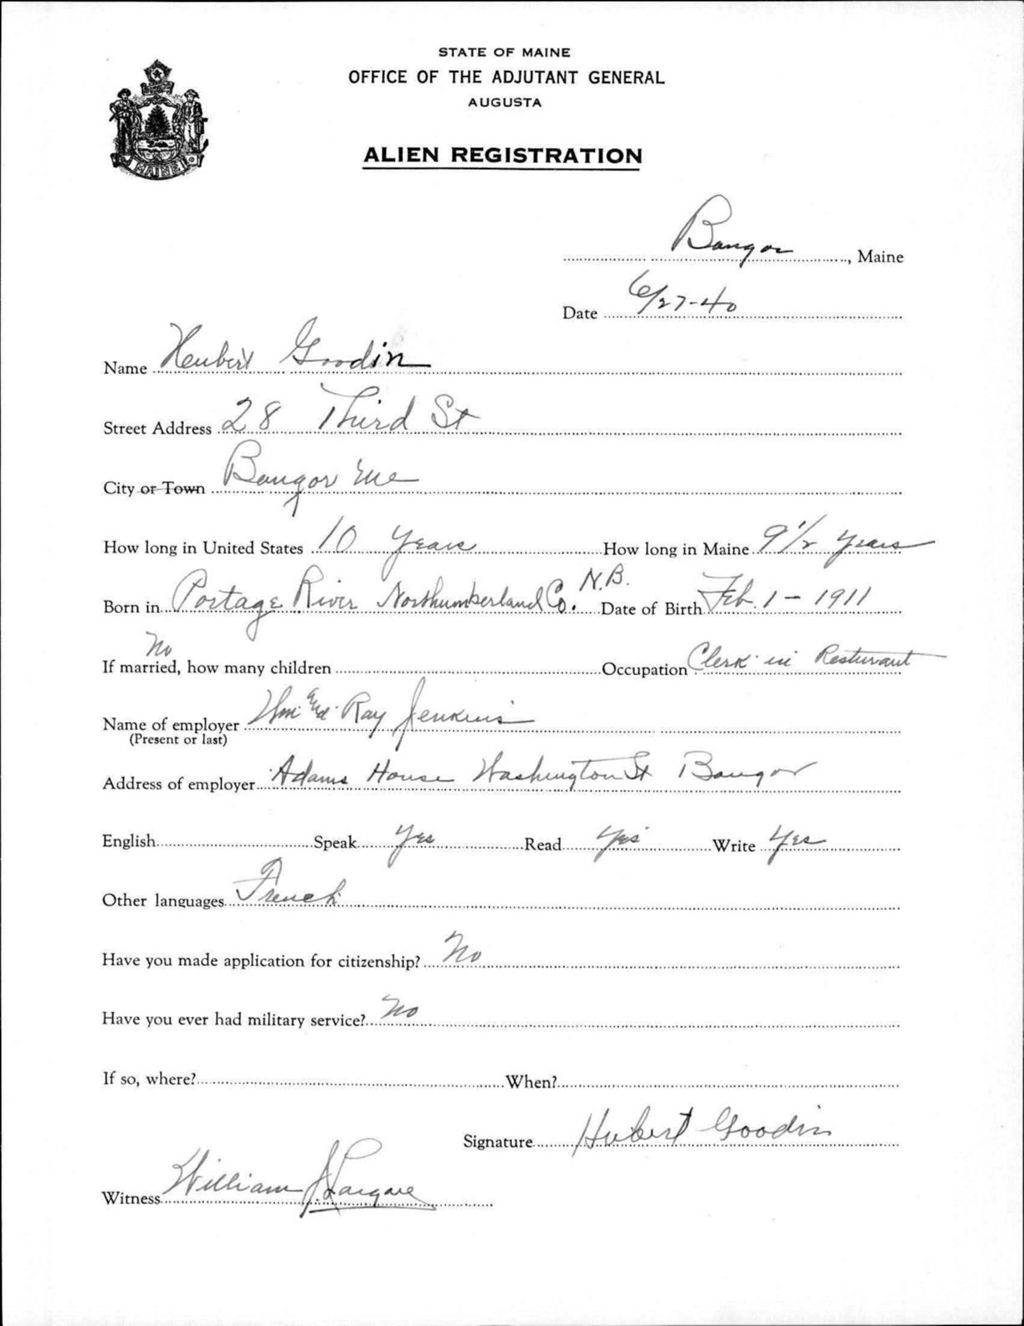 STATE OF MAINE
OFFICE OF THE ADJUTANT GENERAL
AUGUSTA
ALIEN REGISTRATION
MAINE
Bangor, Maine
Date 6/27-40
Name Heubert Goodin
Street Address 28 Third St
City or Town Bangor Me
How long in United States 10 Years How long in Maine 9 1/2 years
Born in Portage River Northumberland Co. N.B. Date of Birth Feb. 1 - 1911
No
If married, how many children Occupation Clerk in Resturant
Name of employer Ray Jenkins
(Present or last)
Address of employer Adams House Washington St Bangor
English Speak Yes Read Yes Write Yes
Other languages French
Have you made application for citizenship? No
Have you ever had military service? No
If so, where? When?
Signature Hubert Goodin
Witness William J.